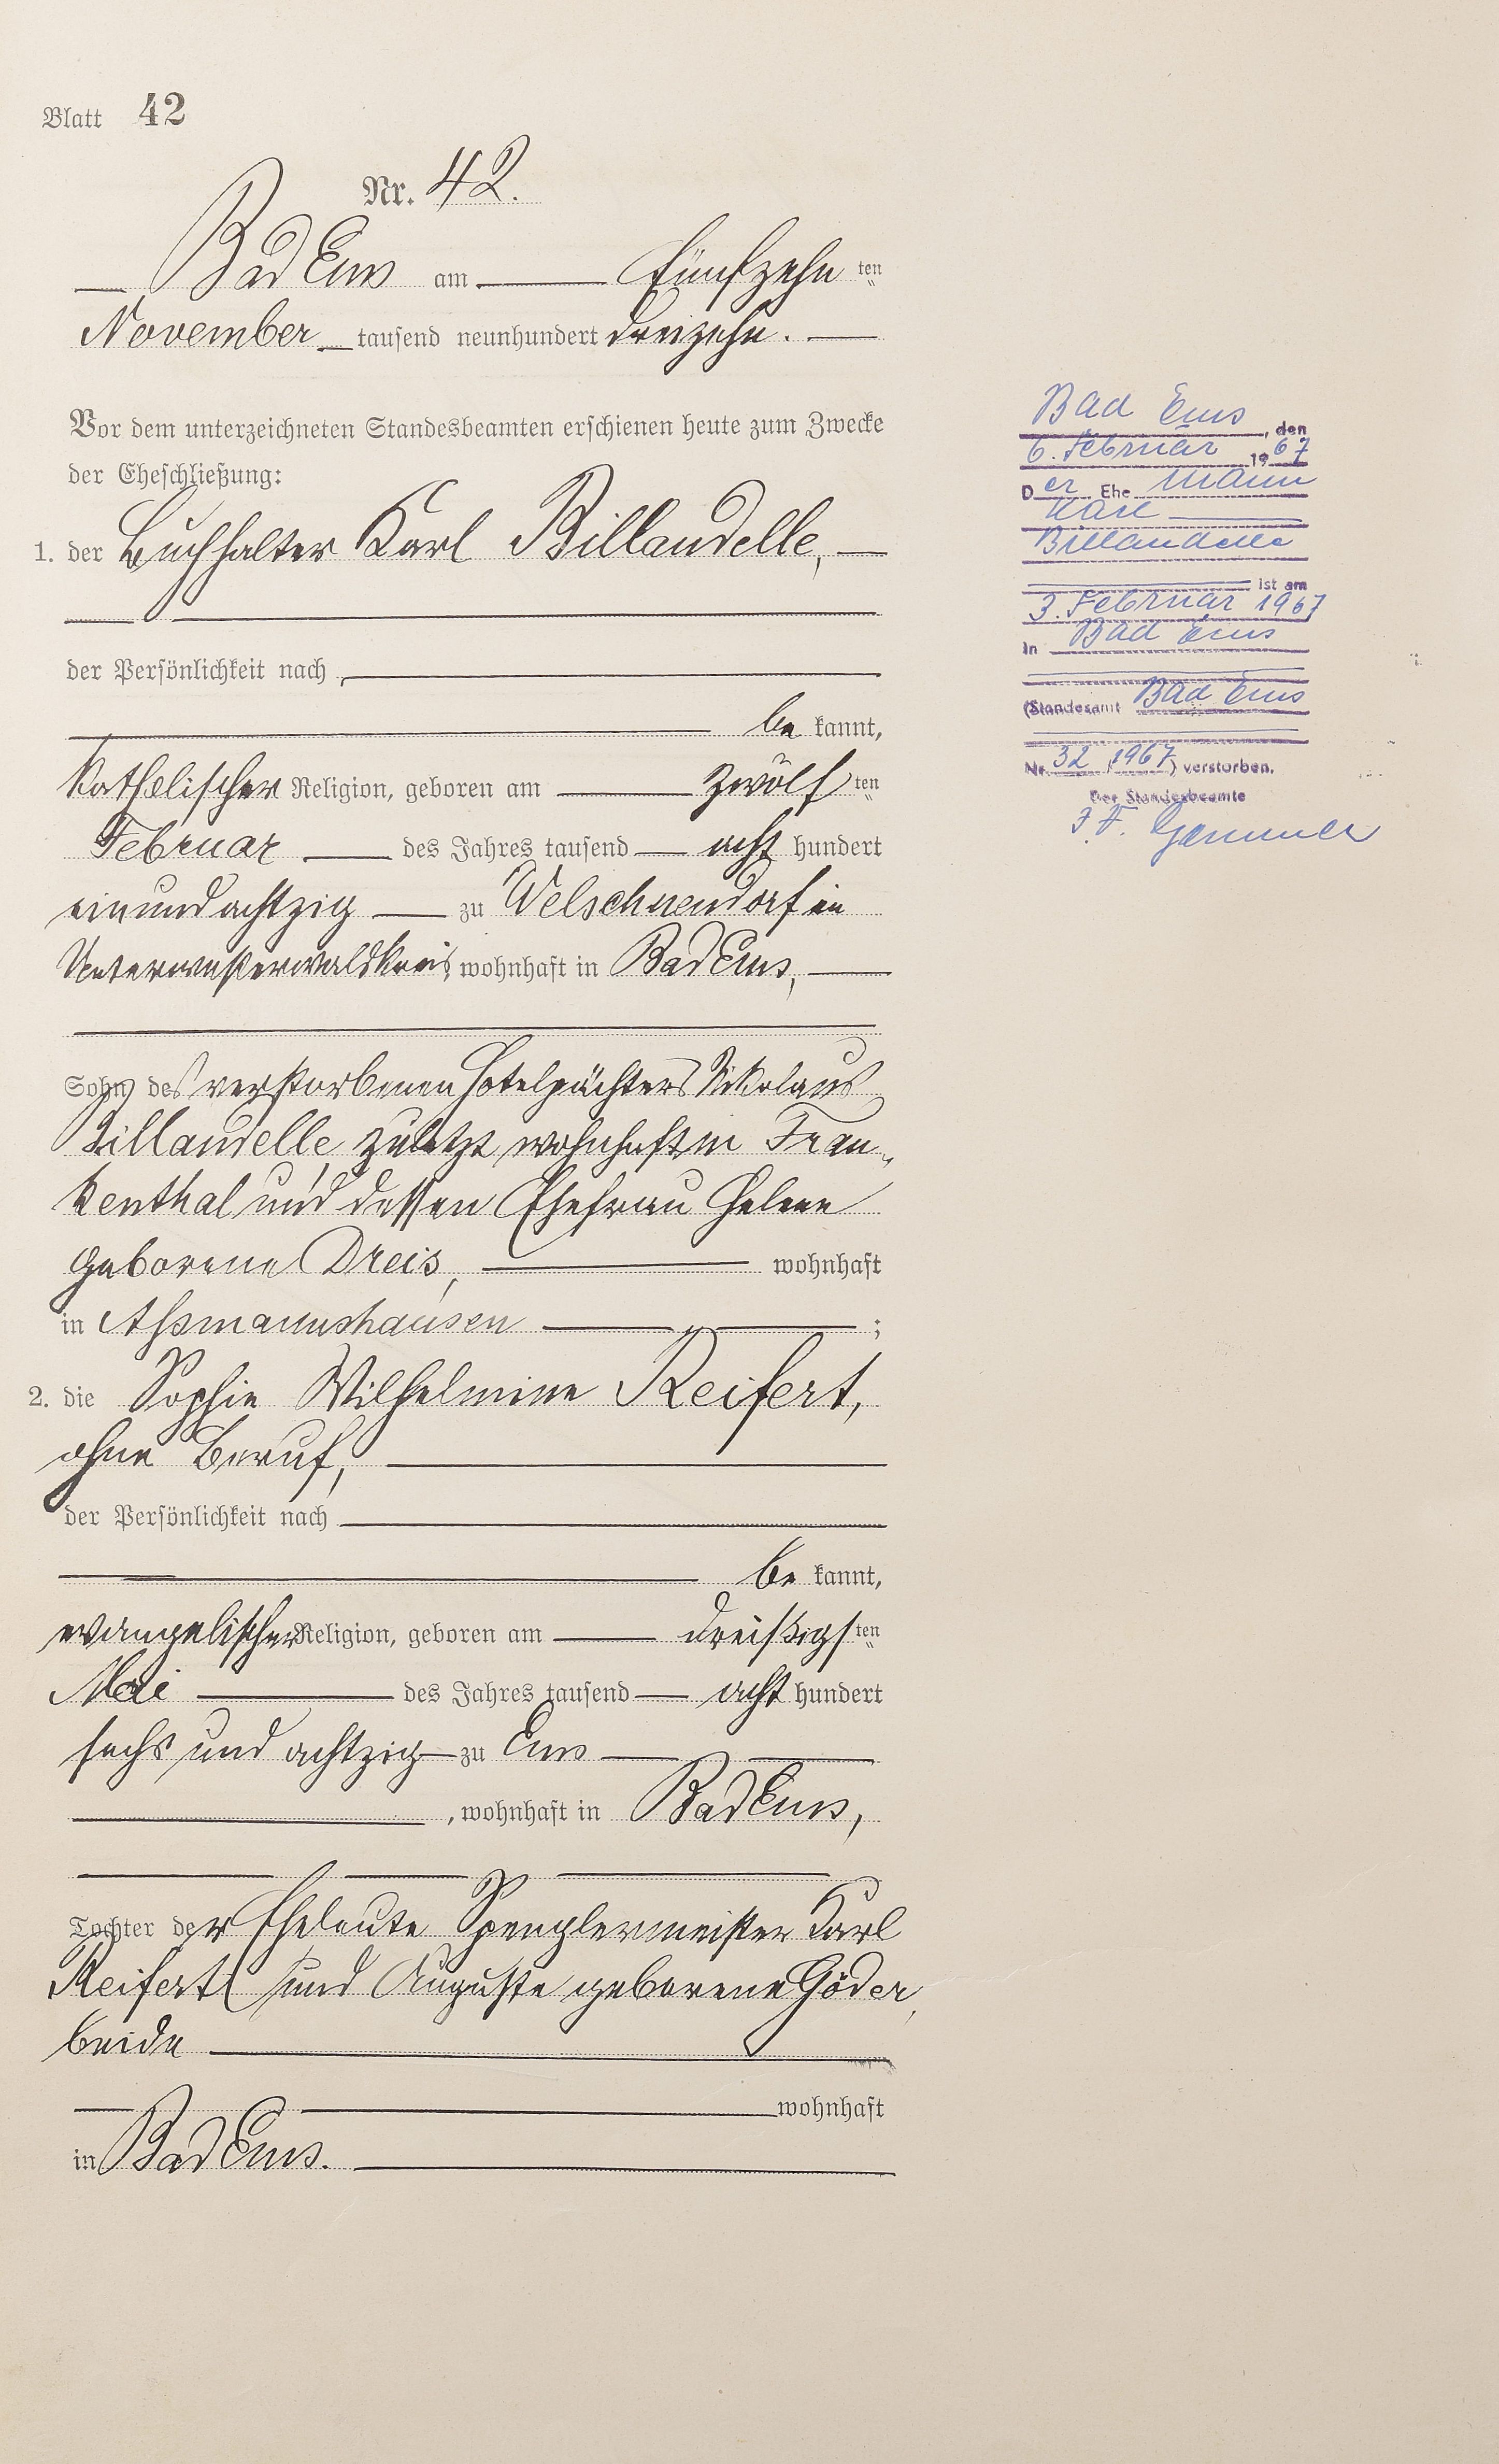 Blatt 42
Nr. 42.
Bad Ems am Fünfzehn ten
November tausend neunhundert dreizehn.
Vor dem unterzeichneten Standesbeamten erschienen heute zum Zwecke
der Eheschließung:
1. der Buchhalter Karl Billaudelle,
der Persönlichkeit nach
be kannt,
katholischer Religion, geboren am zwölf ten
Februar des Jahres tausend acht hundert
einundachtzig zu Welschneudorf in
Unterwesterwaldkreis, wohnhaft in Bad Ems,
Sohn des verstorbenen Hotelpächters Nikolaus
Billaudelle, zuletzt wohnhaft in Fran-
kenthal und dessen Ehefrau Helene
geborene Dreis, wohnhaft
in Aßmannshausen ;
2. die Sophie Wilhelmine Reifert,
ohne Beruf,
der Persönlichkeit nach
be kannt,
evangelischer Religion, geboren am dreißigs ten
Mai des Jahres tausend acht hundert
sechs und achtzig zu Ems
, wohnhaft in Bad Ems,
Tochter der Eheleute Spenglermeister Karl
Reifert und Auguste geborene Göder,
beide
wohnhaft
in Bad Ems.
Bad Ems, den
6. Februar 1967
Der Ehe mann
Karl
Billaudelle
ist am
3. Februar 1967
in Bad Ems
(Standesamt Bad Ems
Nr. 32/1967) verstorben.
Der Standesbeamte